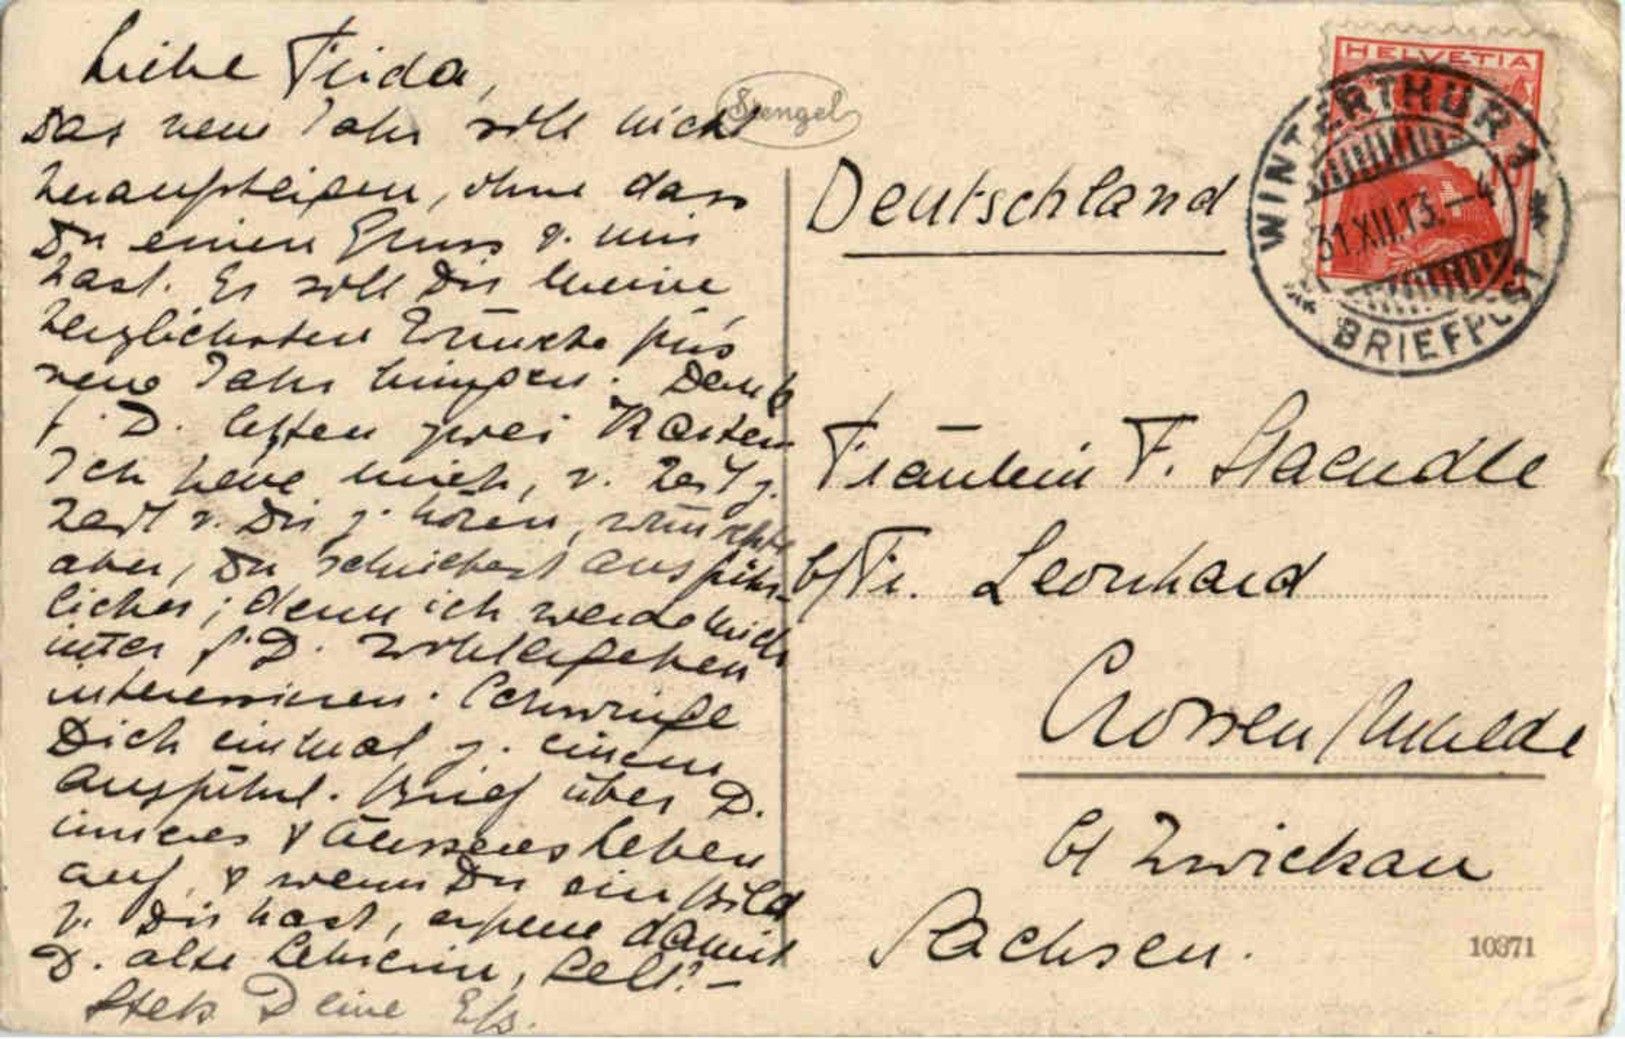 Liebe Frida,
Das neue Jahr soll nicht
heraufsteigen, ohne dass
Du einen Gruss v. mir
hast. Es soll Dir meine
herzlichsten Wünsche fürs
neue Jahr bringen. Dank
f. D. letzten zwei Karten
Ich freue mich, v. Zeit z.
Zeit v. Dir z. hören, wünschte
aber, Du schriebest ausführ-
licher; denn ich werde mich
immer f. D. Wohlergehen
interessieren. Schwinge
Dich einmal z. einem
ausführl. Brief über D.
inneres & äusseres Leben
auf, & wenn Du ein Bild
v. Dir hast, erfreue damit
D. alte Lehrerin, gelt? –
Stets Deine
Stengel
HELVETIA
WINTERTHUR 1
31.XII.13.–4
BRIEFPOST
Deutschland
Fräulein F. Staendle
b/Fr. Leonhard
Crossen/Mulde
b/ Zwickau
Sachsen.
10371